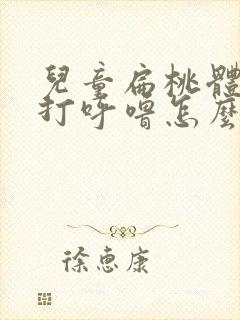 兒童扁桃體
打呼嚕怎麼
徐惠康